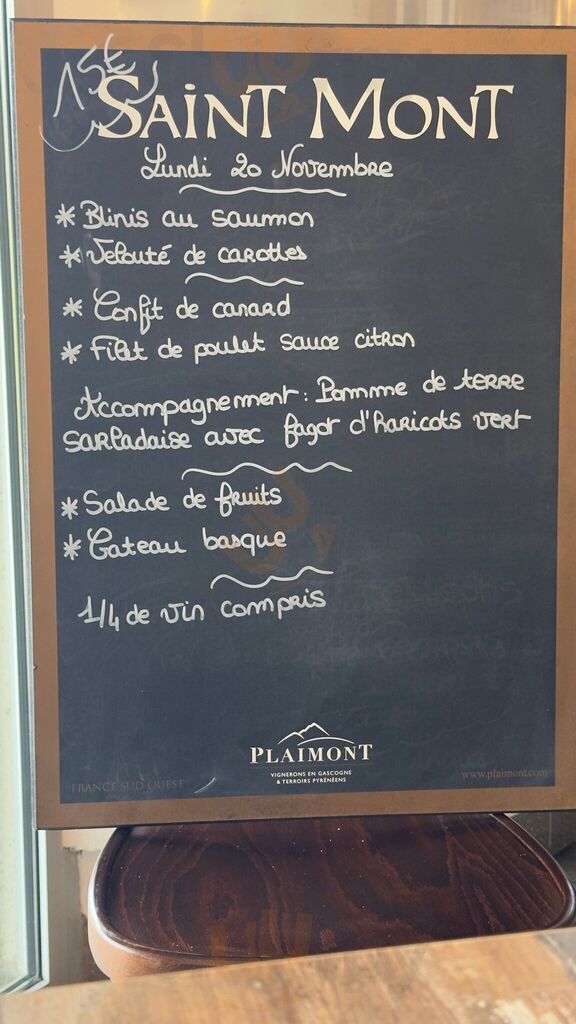 15€
SAINT MONT
Lundi 20 Novembre
* Blinis au saumon
* Velouté de carottes
* Confit de canard
* Filet de poulet sauce citron
Accompagnement : Pomme de terre
sarladaise avec fagot d'haricots vert
* Salade de fruits
* Gateau basque
1/4 de vin compris
PLAIMONT
VIGNERONS EN GASCOGNE
& TERROIRS PYRÉNÉENS
FRANCE SUD OUEST
www.plaimont.com